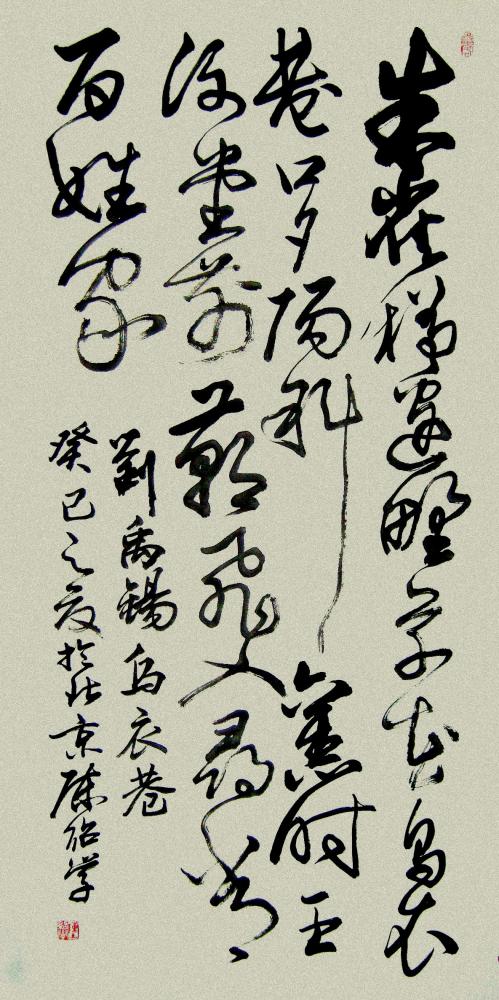 朱雀橋邊野草花烏衣
巷口夕陽斜舊时王
謝堂前燕飛入尋常
百姓家
劉禹錫烏衣巷
癸巳之夏於北京陳紹学